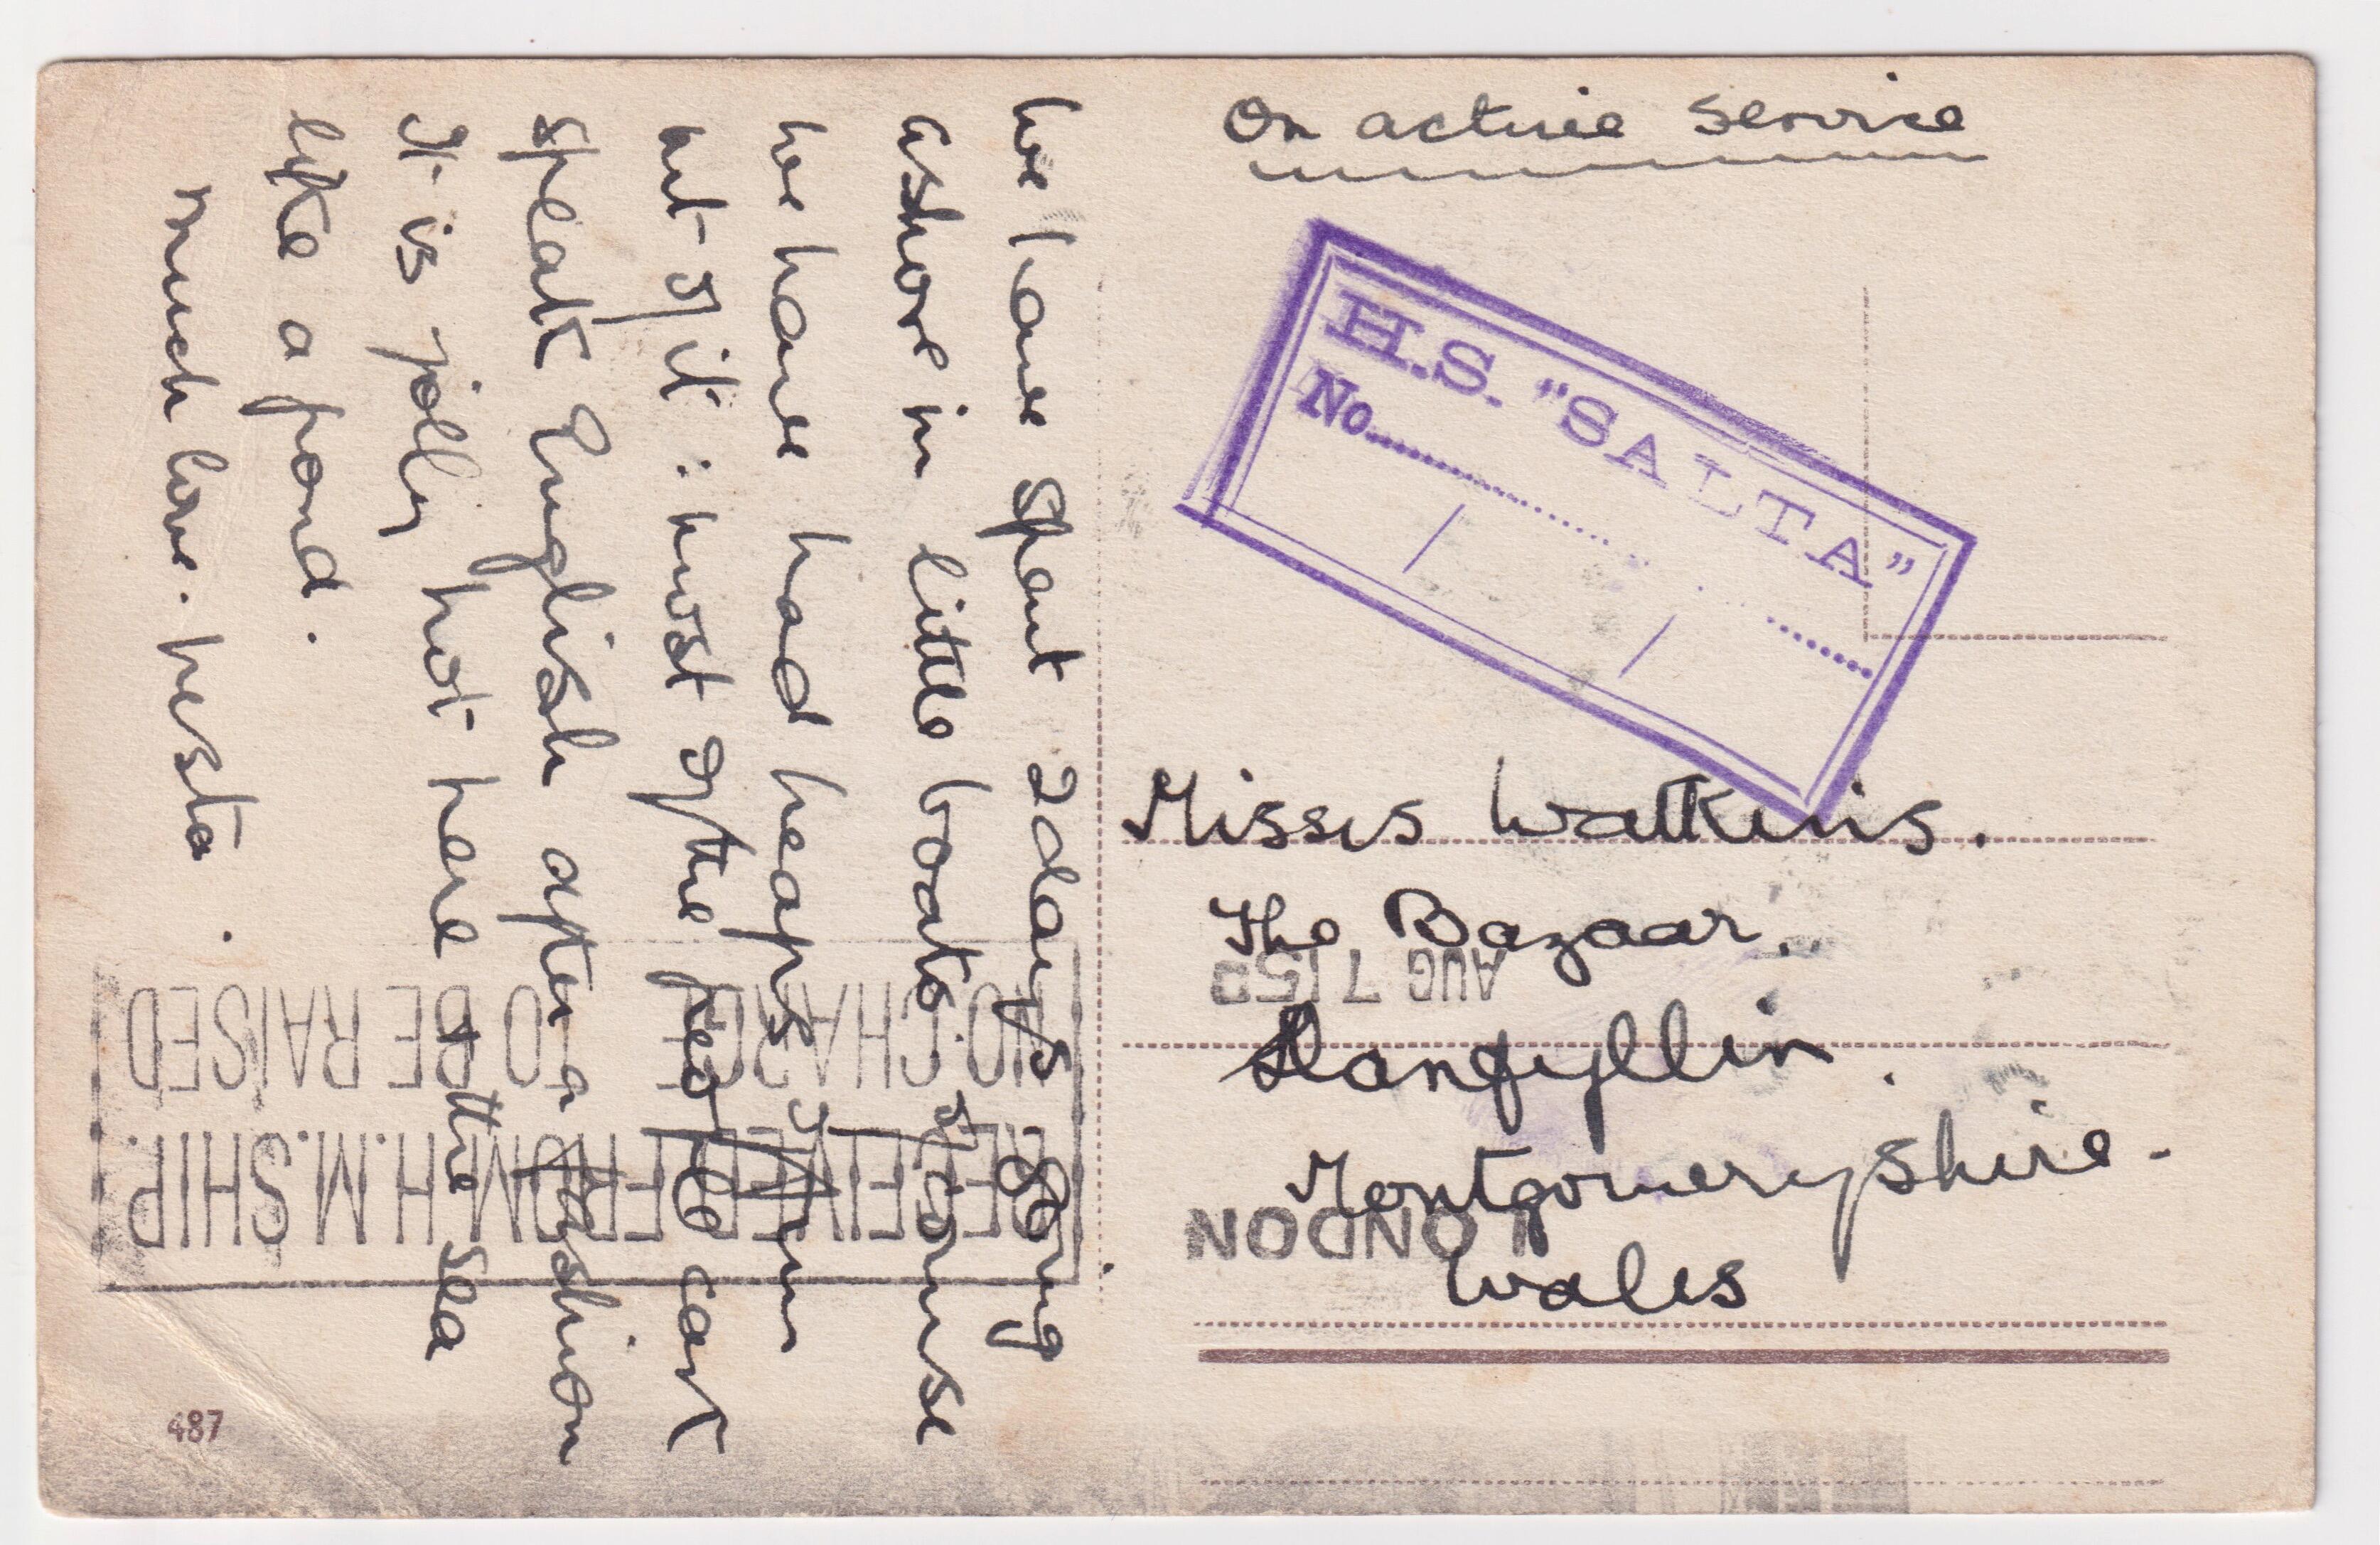 On active service
H.S. "SALTA"
No.
/ /
Misses Watkins.
The Bazaar.
Llanfyllin.
Montgomeryshire-
Wales
AUG 7 15
LONDON
RECEIVED FROM H.M. SHIP.
NO CHARGE TO BE RAISED
We have spent 2 days going
ashore in little boats & of course
we have had heaps of fun
out of it: most of the people can't
speak English after a fashion
It is jolly hot here & the sea
like a pond.
Much love. Nesta.
487